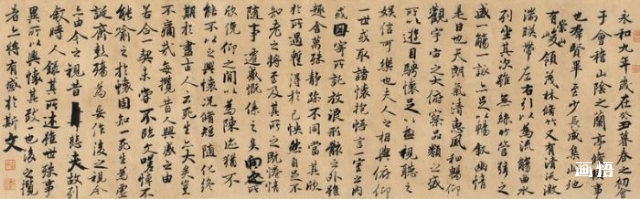 永和九年歲在癸丑暮春之初會
于會稽山陰之蘭亭脩禊事
也羣賢畢至少長咸集此地
有崇山峻領茂林脩竹又有清流激
湍暎帶左右引以為流觴曲水
列坐其次雖無絲竹管絃之
盛一觴一詠亦足以暢敘幽情
是日也天朗氣清惠風和暢仰
觀宇宙之大俯察品類之盛
所以遊目騁懷足以極視聽之
娛信可樂也夫人之相與俯仰
一世或取諸懷抱悟言一室之內
或因寄所託放浪形骸之外雖
趣舍萬殊靜躁不同當其欣
於所遇暫得於己怏然自足不
知老之將至及其所之既惓情
隨事遷感慨係之矣向之所
欣俛仰之間以為陳迹猶不
能不以之興懷況脩短隨化終
期於盡古人云死生亦大矣豈
不痛哉每攬昔人興感之由
若合一契未嘗不臨文嗟悼不
能喻之於懷固知一死生為虛
誕齊彭殤為妄作後之視今
亦由今之視昔悲夫故列
敘時人錄其所述雖世殊事
異所以興懷其致一也後之攬
者亦將有感於斯文
画悟